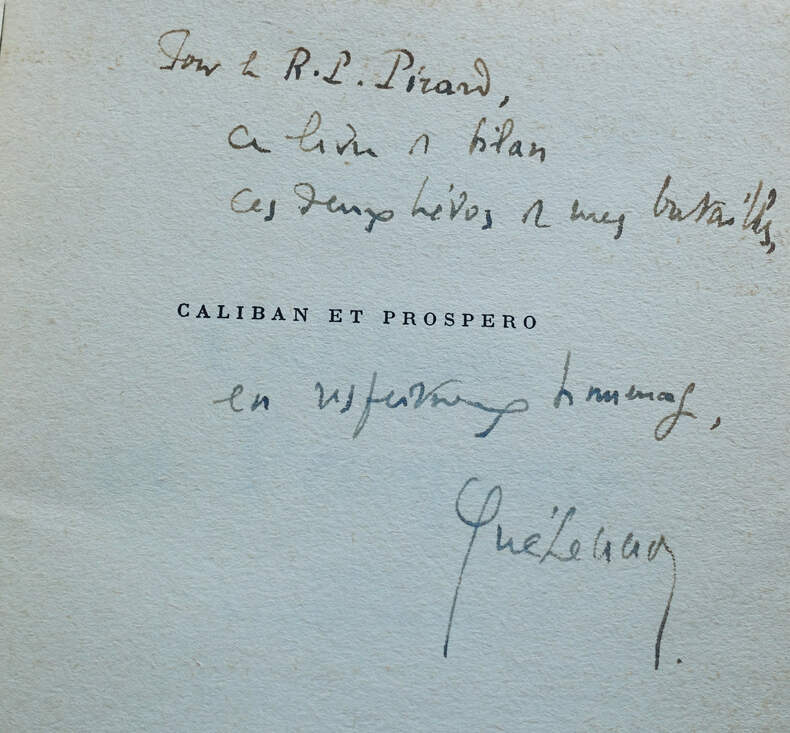 Pour le R.P. Pirard,
ce livre de bilan
ces deux héros de mes batailles,
CALIBAN ET PROSPERO
en respectueux hommage,
Guéhenno.